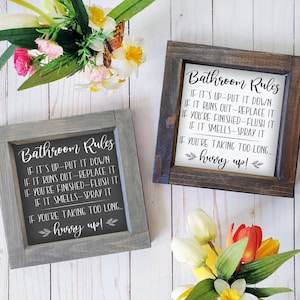 Bathroom Rules
IF IT'S UP-PUT IT DOWN
IF IT RUNS OUT-REPLACE IT
IF YOU'RE FINISHED-FLUSH IT
IF IT SMELLS-SPRAY IT
IF YOU'RE TAKING TOO LONG...
hurry up!
Bathroom Rules
IF IT'S UP-PUT IT DOWN
IF IT RUNS OUT-REPLACE IT
IF YOU'RE FINISHED-FLUSH IT
IF IT SMELLS-SPRAY IT
IF YOU'RE TAKING TOO LONG...
hurry up!